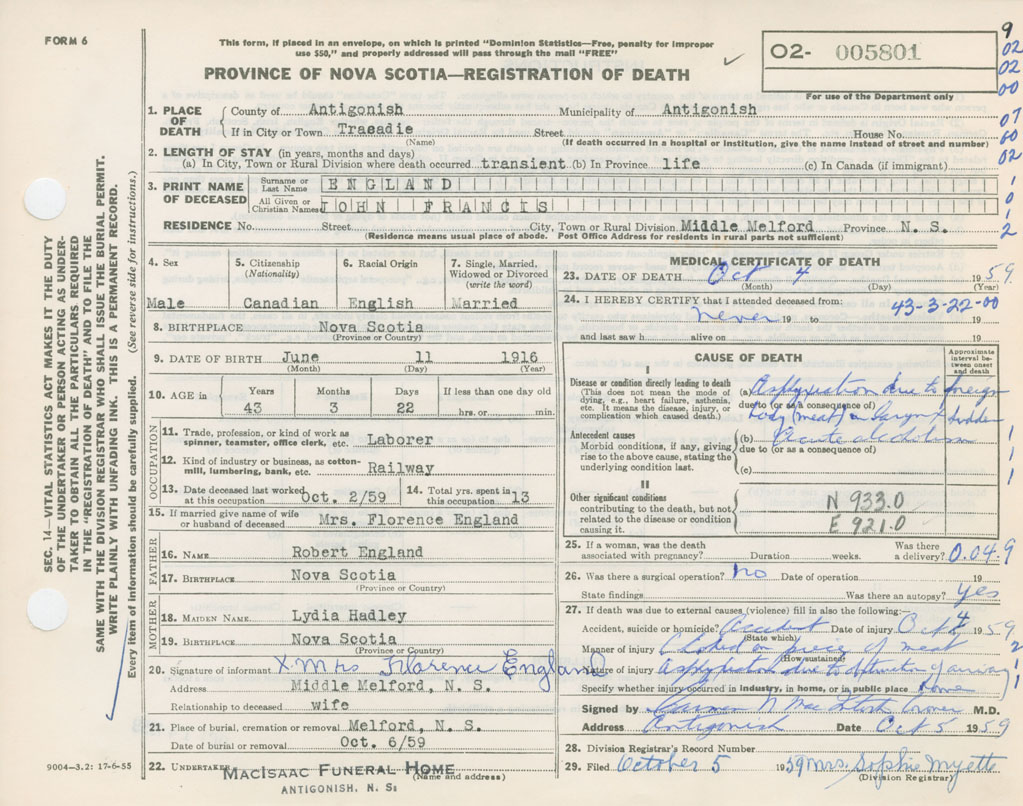 FORM 6
This form, if placed in an envelope, on which is printed "Dominion Statistics—Free, penalty for improper
use $50," and properly addressed will pass through the mail "FREE"
PROVINCE OF NOVA SCOTIA—REGISTRATION OF DEATH
02- 005801
For use of the Department only
9
02
02
00
07
60
02
1
0
1
2
1. PLACE OF DEATH { County of Antigonish Municipality of Antigonish
If in City or Town Tracadie Street House No.
(Name) (If death occurred in a hospital or institution, give the name instead of street and number)
2. LENGTH OF STAY (in years, months and days)
(a) In City, Town or Rural Division where death occurred transient (b) In Province life (c) In Canada (if immigrant)
3. PRINT NAME OF DECEASED Surname or Last Name ENGLAND
All Given or Christian Names JOHN FRANCIS
RESIDENCE No. Street City, Town or Rural Division Middle Melford Province N. S.
(Residence means usual place of abode. Post Office Address for residents in rural parts not sufficient)
4. Sex 5. Citizenship (Nationality) 6. Racial Origin 7. Single, Married, Widowed or Divorced (write the word)
Male Canadian English Married
8. BIRTHPLACE Nova Scotia
(Province or Country)
9. DATE OF BIRTH June 11 1916
(Month) (Day) (Year)
10. AGE in { Years Months Days If less than one day old
43 3 22 hrs. or min.
OCCUPATION
11. Trade, profession, or kind of work as spinner, teamster, office clerk, etc. Laborer
12. Kind of industry or business, as cotton-mill, lumbering, bank, etc. Railway
13. Date deceased last worked at this occupation Oct. 2/59 14. Total yrs. spent in this occupation 13
15. If married give name of wife or husband of deceased Mrs. Florence England
FATHER
16. NAME Robert England
17. BIRTHPLACE Nova Scotia
(Province or Country)
MOTHER
18. MAIDEN NAME Lydia Hadley
19. BIRTHPLACE Nova Scotia
(Province or Country)
20. Signature of informant X Mrs Florence England
Address Middle Melford, N. S.
Relationship to deceased wife
21. Place of burial, cremation or removal Melford, N. S.
Date of burial or removal Oct. 6/59
22. UNDERTAKER MACISAAC FUNERAL HOME
(Name and address)
ANTIGONISH, N. S.
9004—3.2: 17-6-55
MEDICAL CERTIFICATE OF DEATH
23. DATE OF DEATH Oct 4 1959
(Month) (Day) (Year)
24. I HEREBY CERTIFY that I attended deceased from: 43-3-22-00
never 19 to 19
and last saw h alive on 19
CAUSE OF DEATH
Approximate interval between onset and death
I
Disease or condition directly leading to death
(This does not mean the mode of dying, e.g., heart failure, asthenia, etc. It means the disease, injury, or complication which caused death.)
(a) Asphyxiation due to foreign
due to (or as a consequence of)
body (meat) in larynx sudden
Antecedent causes
Morbid conditions, if any, giving rise to the above cause, stating the underlying condition last.
(b) Acute alcoholism
due to (or as a consequence of)
(c)
II
Other significant conditions
contributing to the death, but not related to the disease or condition causing it.
N 933.0
E 921.0
1
1
1
25. If a woman, was the death associated with pregnancy? Duration weeks. Was there a delivery? 0.04.9
26. Was there a surgical operation? no Date of operation 19
State findings Was there an autopsy? yes
27. If death was due to external causes (violence) fill in also the following:—
Accident, suicide or homicide? Accident Date of injury Oct 4 1959
(State which)
Manner of injury Choked on piece of meat 2
(How sustained)
Nature of injury Asphyxiation due to obstruction of airway 1
Specify whether injury occurred in industry, in home, or in public place home 1
Signed by M.D.
Address Antigonish Date Oct 5 1959
28. Division Registrar's Record Number
29. Filed October 5 1959 Mrs. Sophie Myette
(Division Registrar)
SEC. 14—VITAL STATISTICS ACT MAKES IT THE DUTY
OF THE UNDERTAKER OR PERSON ACTING AS UNDER-
TAKER TO OBTAIN ALL THE PARTICULARS REQUIRED
IN THE "REGISTRATION OF DEATH" AND TO FILE THE
SAME WITH THE DIVISION REGISTRAR WHO SHALL ISSUE THE BURIAL PERMIT.
WRITE PLAINLY WITH UNFADING INK. THIS IS A PERMANENT RECORD.
Every item of information should be carefully supplied. (See reverse side for instructions.)